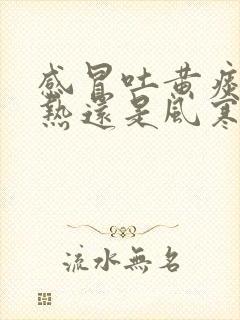 感冒吐黄痰
熱還是風寒
流水無名